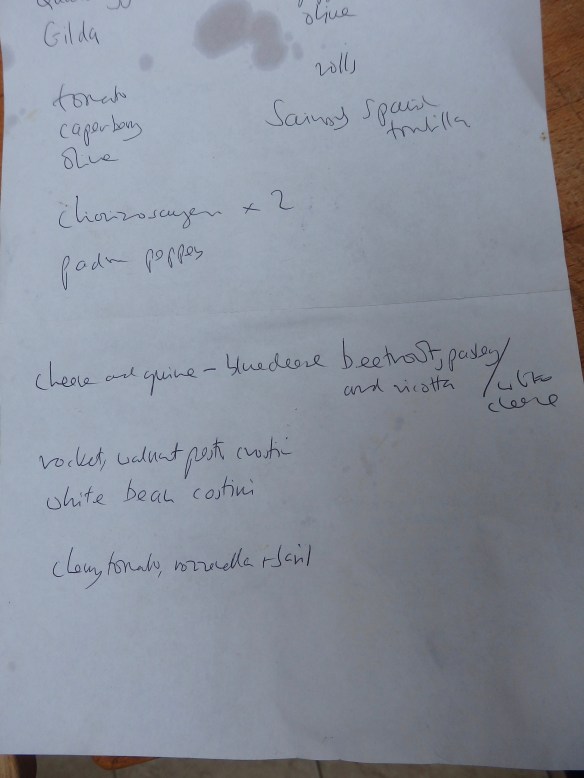 Gilda
olive
rolls
tomato
caperberry
olive
Spanish
tortilla
x 2
padron peppers
cheese and quince - blue cheese
beetroot, parsley
and ricotta
cheese
rocket, walnut pesto crostini
white bean costini
cherry tomato, mozzarella + basil